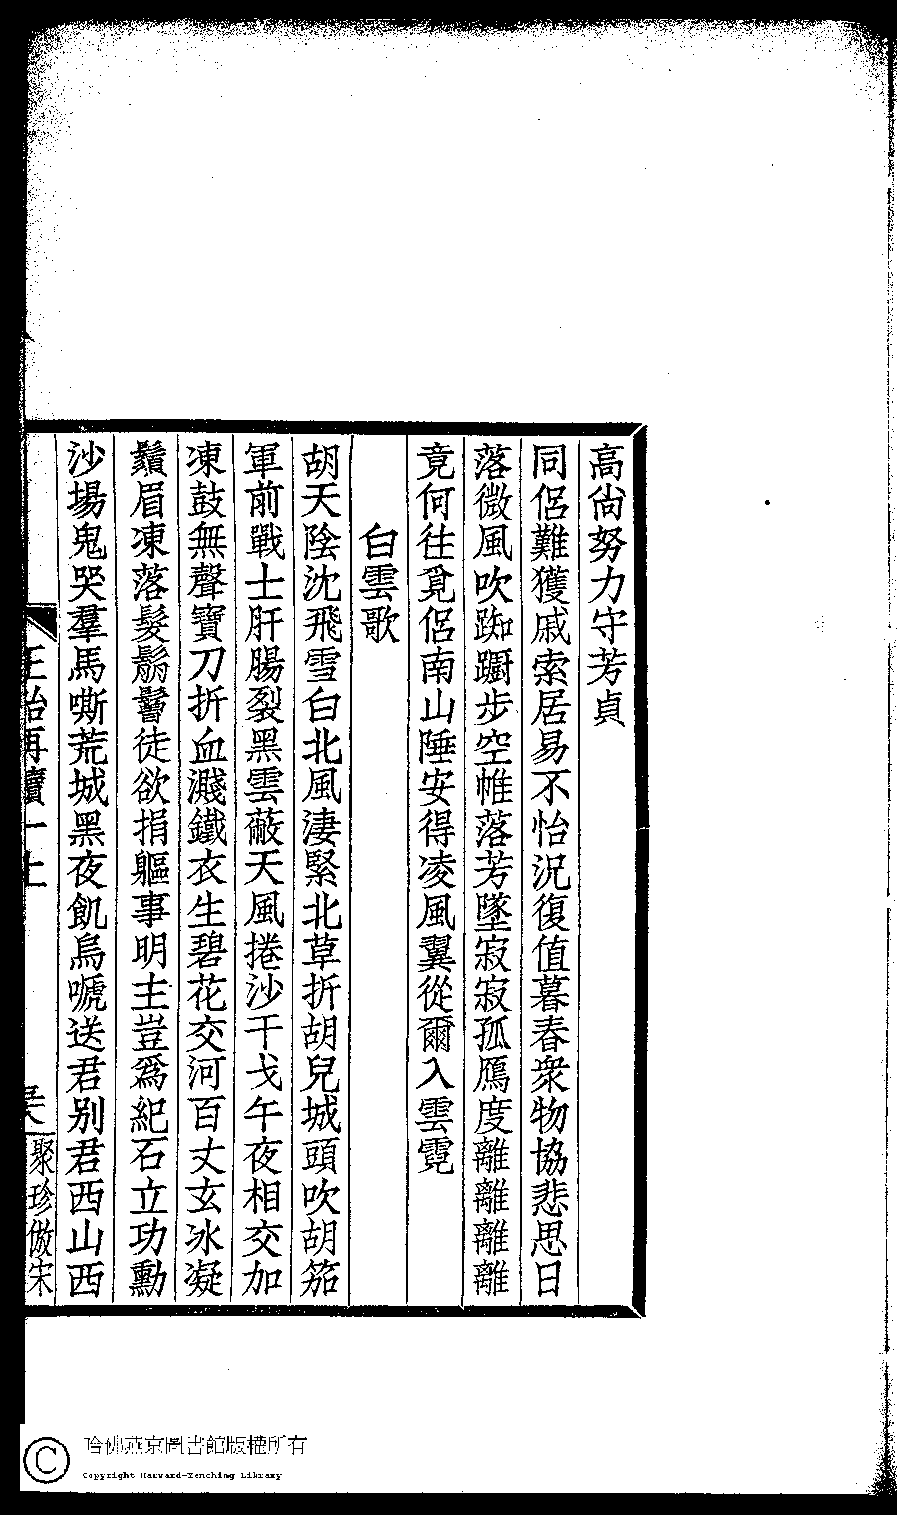 高尙努力守芳貞
同侶難獲戚索居易不怡況復值暮春衆物協悲思日
落微風吹踟躕步空帷落芳墜寂寂孤鴈度離離離離
竟何往覓侶南山陲安得凌風翼從爾入雲霓
白雲歌
胡天陰沈飛雪白北風淒緊北草折胡兒城頭吹胡笳
軍前戰士肝腸裂黑雲蔽天風捲沙干戈午夜相交加
凍鼓無聲寶刀折血濺鐵衣生碧花交河百丈玄冰凝
鬚眉凍落髮鬅鬠徒欲捐軀事明主豈爲紀石立功勳
沙場鬼哭羣馬嘶荒城黑夜飢烏嗁送君别君西山西
聚珍倣宋
哈佛燕京圖書館版權所有
Copyright Harvard-Yenching Library